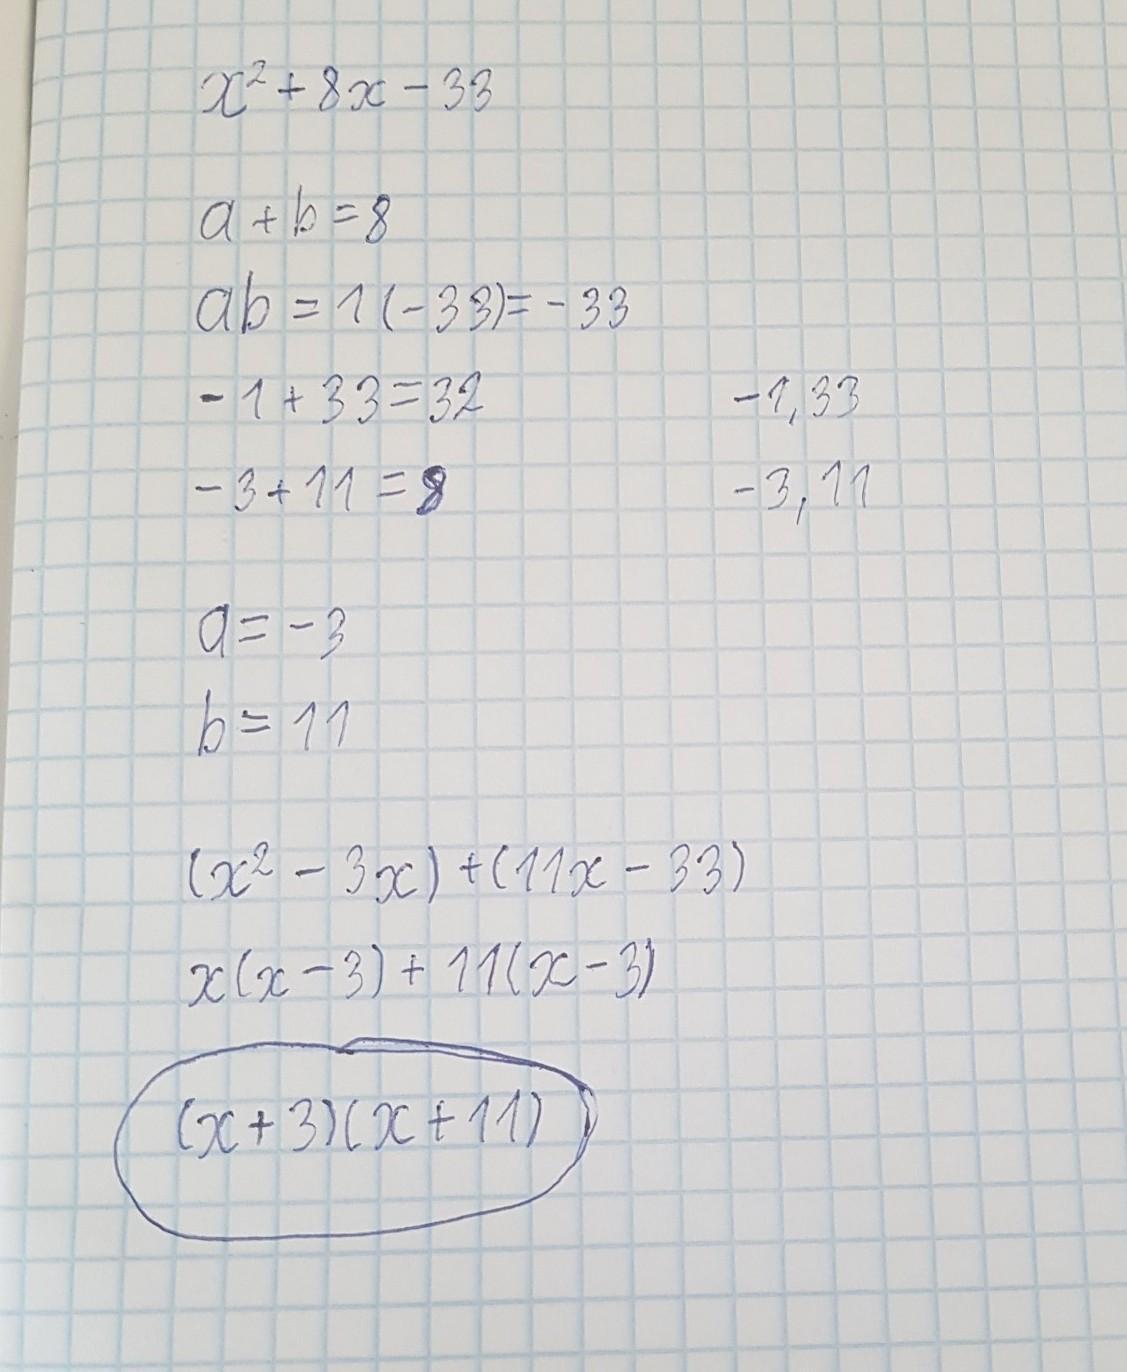 x² + 8x - 33
a + b = 8
ab = 1(-33) = -33
-1 + 33 = 32 -1, 33
-3 + 11 = 8 -3, 11
a = -3
b = 11
(x² - 3x) + (11x - 33)
x(x - 3) + 11(x - 3)
(x + 3)(x + 11)